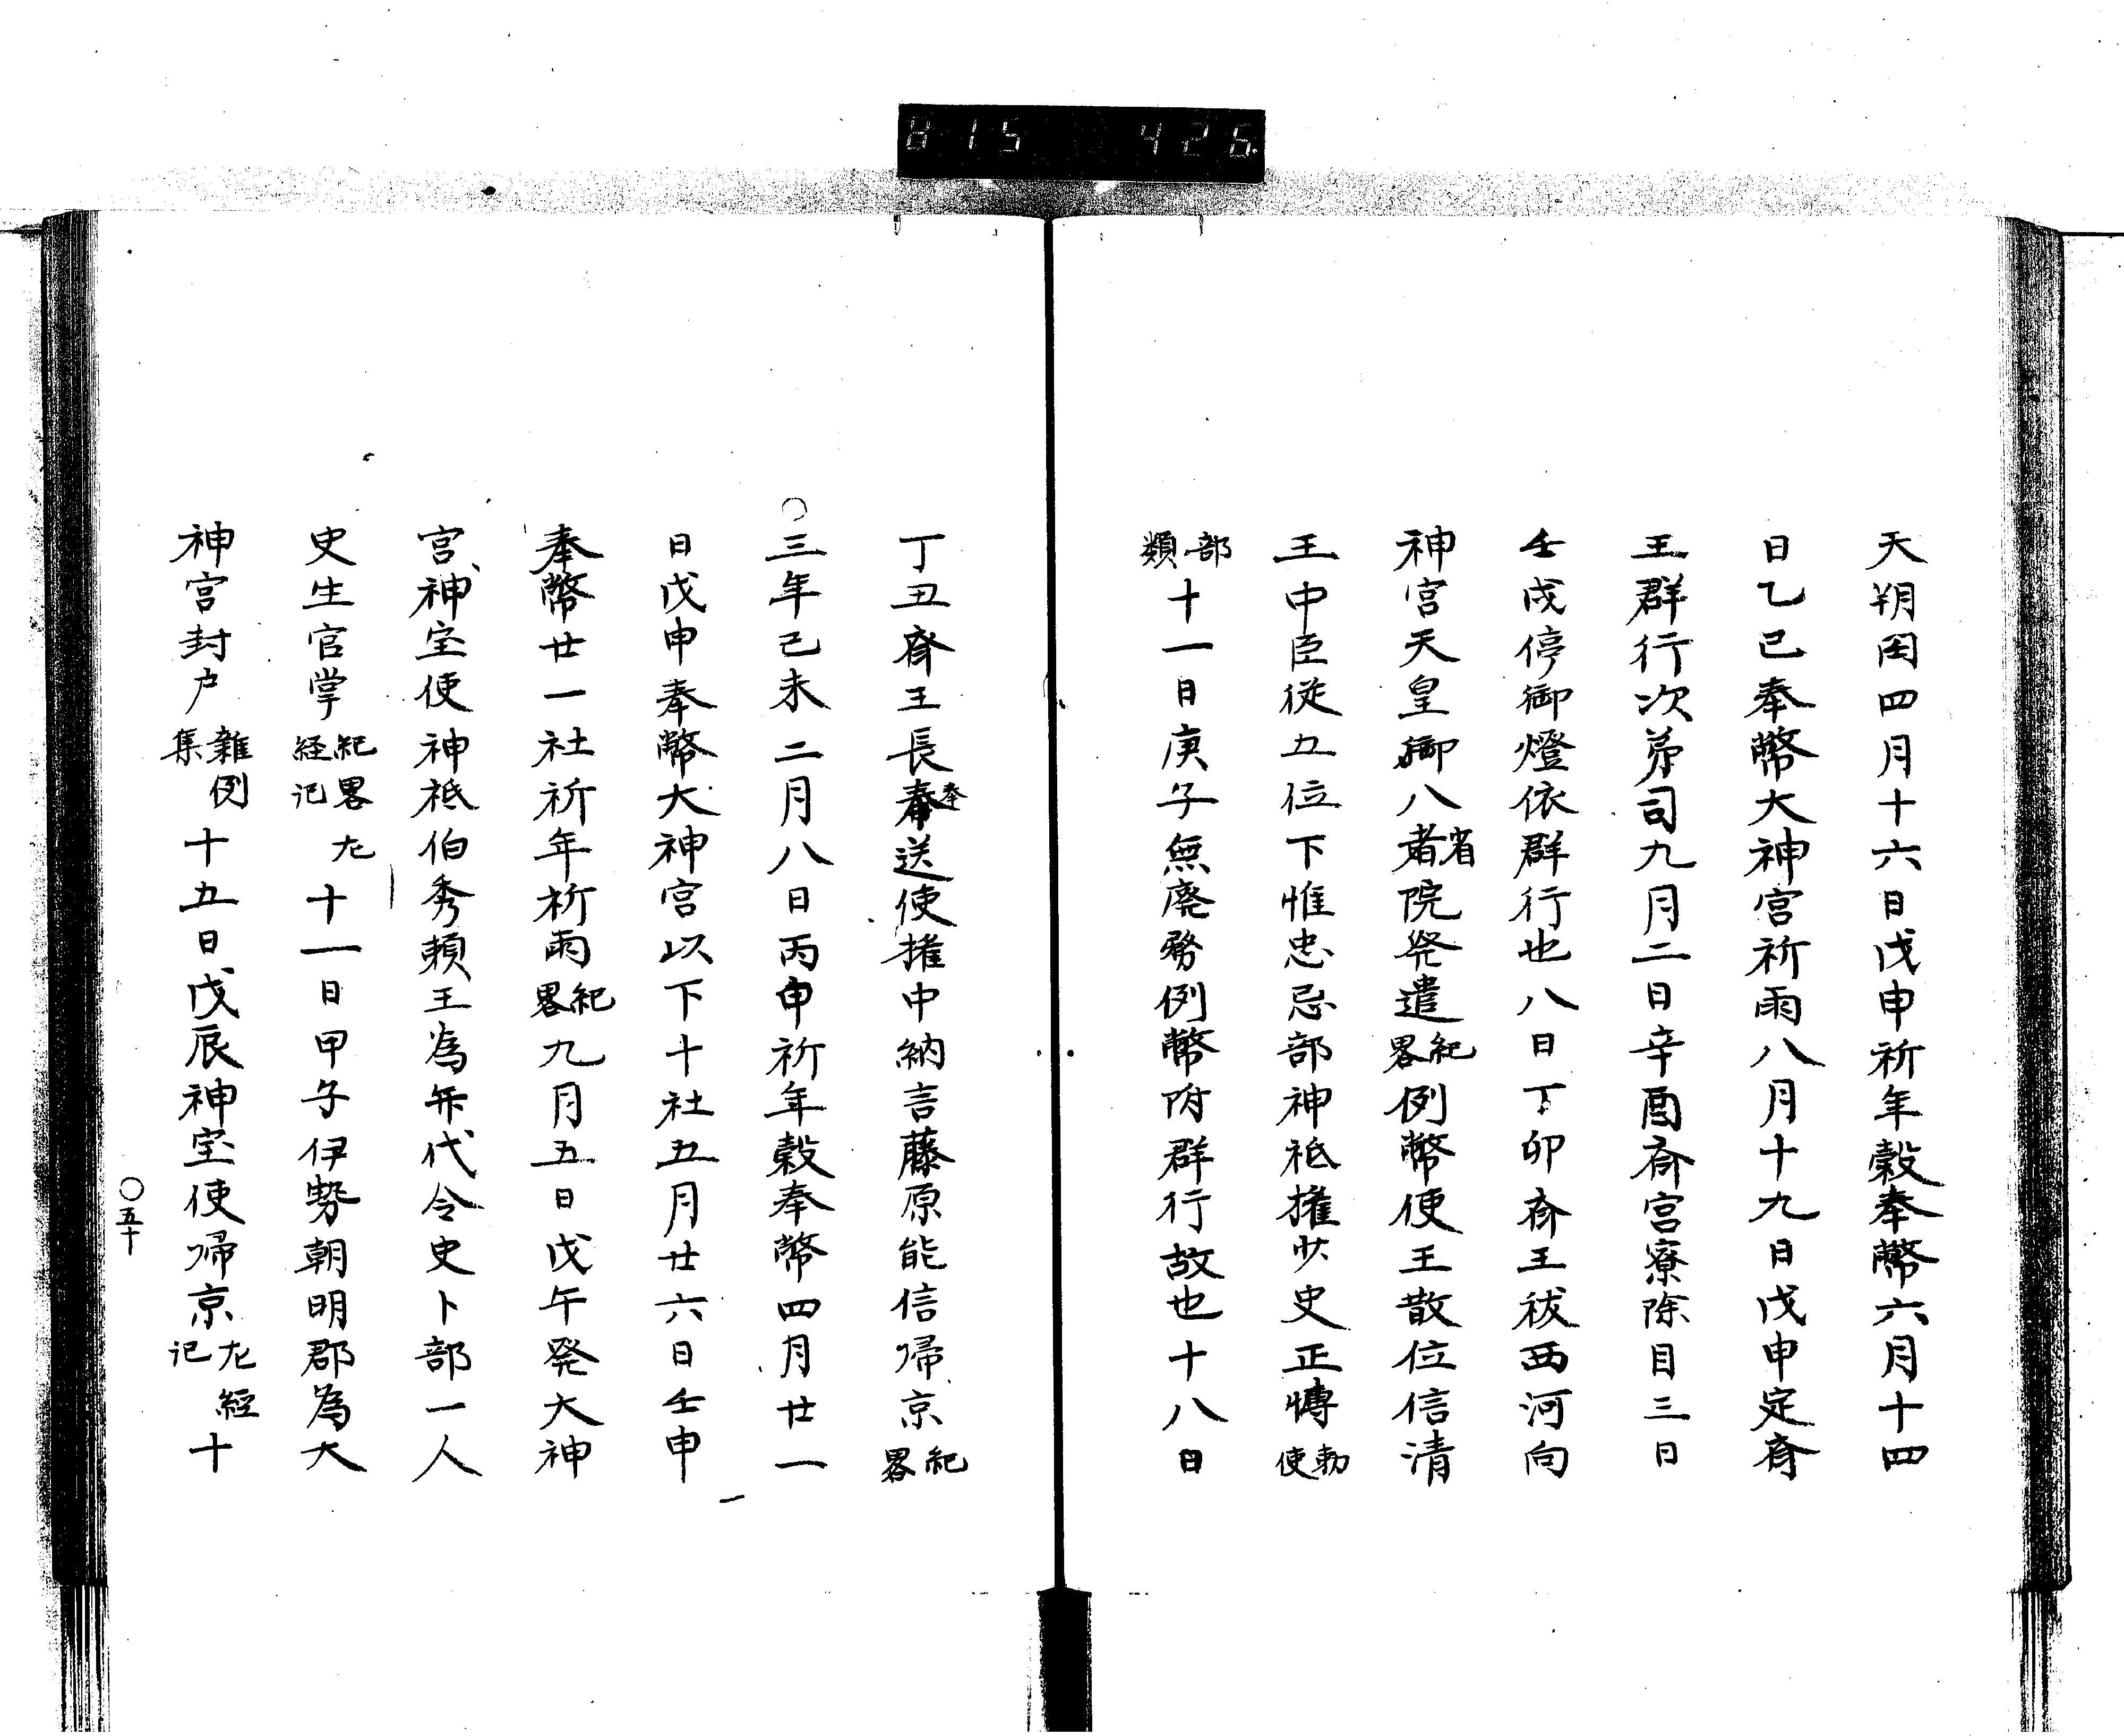 815 426
天朔困四月十六日戊申祈年穀奉幣六月十四
日乙巳奉幣大神宮祈雨八月十九日戊申定斎
王群行次第司九月二日辛酉斎宮寮除目三日
壬戌停御燈依群行也八日丁卯斎王祓西河向
神宮天皇御八省者院発遣紀畧例幣使王散位信清
王中臣従五位下惟忠忌部神祇権少史正懐勅使
部類十一日庚子無廃務例幣附群行故也十八日
丁丑斎王長奉送使権中納言藤原能信帰京紀畧
〇三年己未二月八日丙申祈年穀奉幣四月廿一
日戊申奉幣大神宮以下十社五月廿六日壬申
奉幣廿一社祈年祈雨紀畧九月五日戊午発大神
宮神宝使神祇伯秀頼王為弁代令史卜部一人
史生官掌紀畧左経記十一日甲子伊勢朝明郡為大
神宮封戸雑例集十五日戊辰神宝使帰京左経記十
〇五十